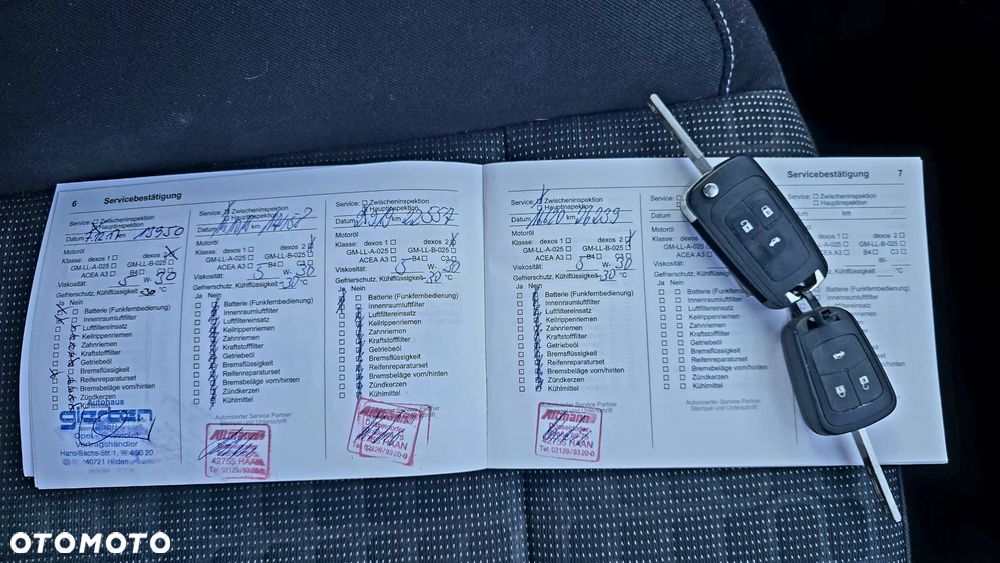 6 Servicebestätigung
Service: Zwischeninspektion
Hauptinspektion
Datum 7.12.17 km 13950
Motoröl
Klasse: dexos 1 dexos 2
GM-LL-A-025 GM-LL-B-025
ACEA A3 B4 C3
Viskosität: 5 W- 30
Gefrierschutz, Kühlflüssigkeit -30 °C
Ja Nein
Batterie (Funkfernbedienung)
Innenraumluftfilter
Luftfiltereinsatz
Keilrippenriemen
Zahnriemen
Kraftstofffilter
Getriebeöl
Bremsflüssigkeit
Reifenreparaturset
Bremsbeläge vorn/hinten
Zündkerzen
Kühlmittel
Autohaus
gierten
GmbH
Opel
Vertragshändler
Hans-Sachs-Str.1, 490 20
40721 Hilden
Service: Zwischeninspektion
Hauptinspektion
Datum km
Motoröl
Klasse: dexos 1 dexos 2
GM-LL-A-025 GM-LL-B-025
ACEA A3 B4 C3
Viskosität: 5 W- 30
Gefrierschutz, Kühlflüssigkeit -30 °C
Ja Nein
Batterie (Funkfernbedienung)
Innenraumluftfilter
Luftfiltereinsatz
Keilrippenriemen
Zahnriemen
Kraftstofffilter
Getriebeöl
Bremsflüssigkeit
Reifenreparaturset
Bremsbeläge vorn/hinten
Zündkerzen
Kühlmittel
Autorisierter Service Partner
Stempel und Unterschrift
Altmann
42755 HAAN
Tel. 02129/9320-0
Service: Zwischeninspektion
Hauptinspektion
Datum km 22557
Motoröl
Klasse: dexos 1 dexos 2
GM-LL-A-025 GM-LL-B-025
ACEA A3 B4 C3
Viskosität: 5 W- 30
Gefrierschutz, Kühlflüssigkeit -30 °C
Ja Nein
Batterie (Funkfernbedienung)
Innenraumluftfilter
Luftfiltereinsatz
Keilrippenriemen
Zahnriemen
Kraftstofffilter
Getriebeöl
Bremsflüssigkeit
Reifenreparaturset
Bremsbeläge vorn/hinten
Zündkerzen
Kühlmittel
Altmann
Düsseldorfer
HAAN
02129/9320-0
Servicebestätigung 7
Service: Zwischeninspektion
Hauptinspektion
Datum km 28039
Motoröl
Klasse: dexos 1 dexos 2
GM-LL-A-025 GM-LL-B-025
ACEA A3 B4 C3
Viskosität: 5 W- 30
Gefrierschutz, Kühlflüssigkeit -30 °C
Ja Nein
Batterie (Funkfernbedienung)
Innenraumluftfilter
Luftfiltereinsatz
Keilrippenriemen
Zahnriemen
Kraftstofffilter
Getriebeöl
Bremsflüssigkeit
Reifenreparaturset
Bremsbeläge vorn/hinten
Zündkerzen
Kühlmittel
Altmann
Düsseldorfer
42755 HAAN
Tel. 02129/9320-0
Service: Zwischeninspektion
Hauptinspektion
Datum km
Motoröl
Klasse:
Viskosität:
Gefrierschutz,
Ja Nein
Batterie
Innenraumluftfilter
Luftfiltereinsatz
Keilrippenriemen
Zahnriemen
Kraftstofffilter
Getriebeöl
Bremsflüssigkeit
Reifenreparaturset
Bremsbeläge
Zündkerzen
Kühlmittel
Autorisierter Service Partner
Stempel und Unterschrift
OTOMOTO